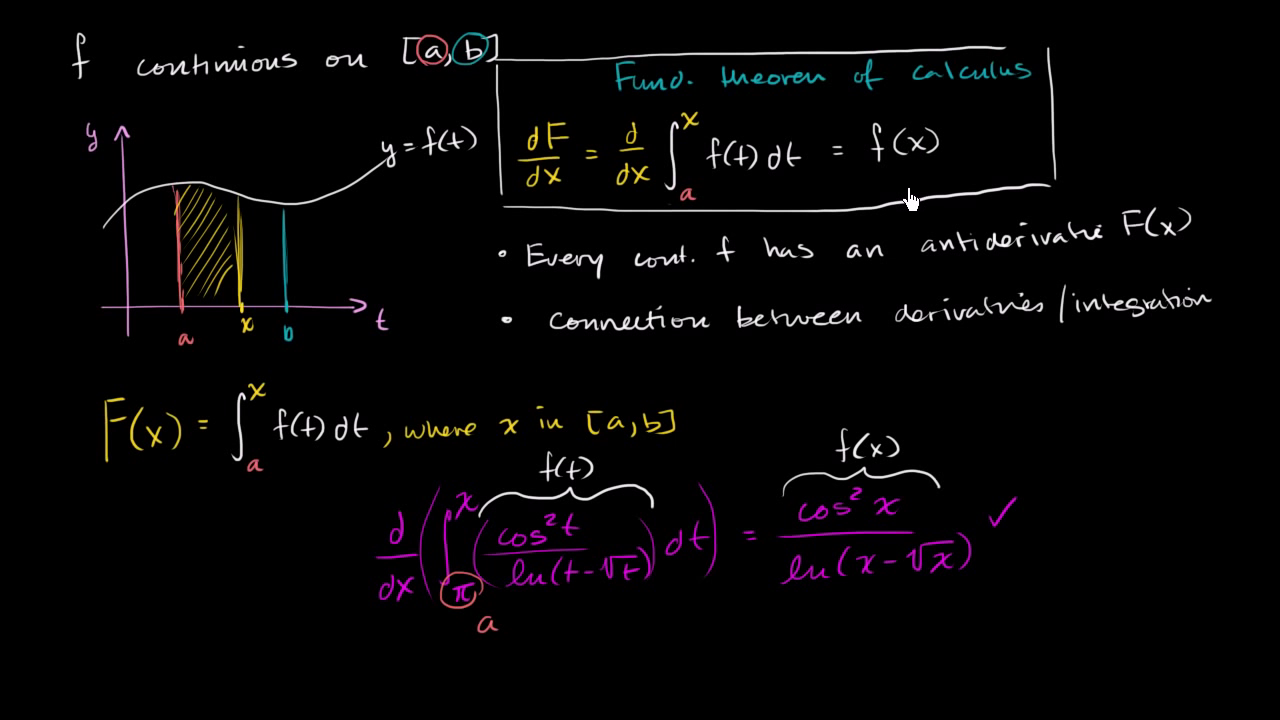 f continuous on [a, b]
Fund. theorem of calculus
dF/dx = d/dx ∫_a^x f(t) dt = f(x)
y
y = f(t)
a x b t
• Every cont. f has an antiderivative F(x)
• connection between derivatives/integration
F(x) = ∫_a^x f(t) dt, where x in [a, b]
f(t) f(x)
d/dx (∫_π^x (cos² t / ln(t-√t)) dt) = cos² x / ln(x-√x) ✓
a